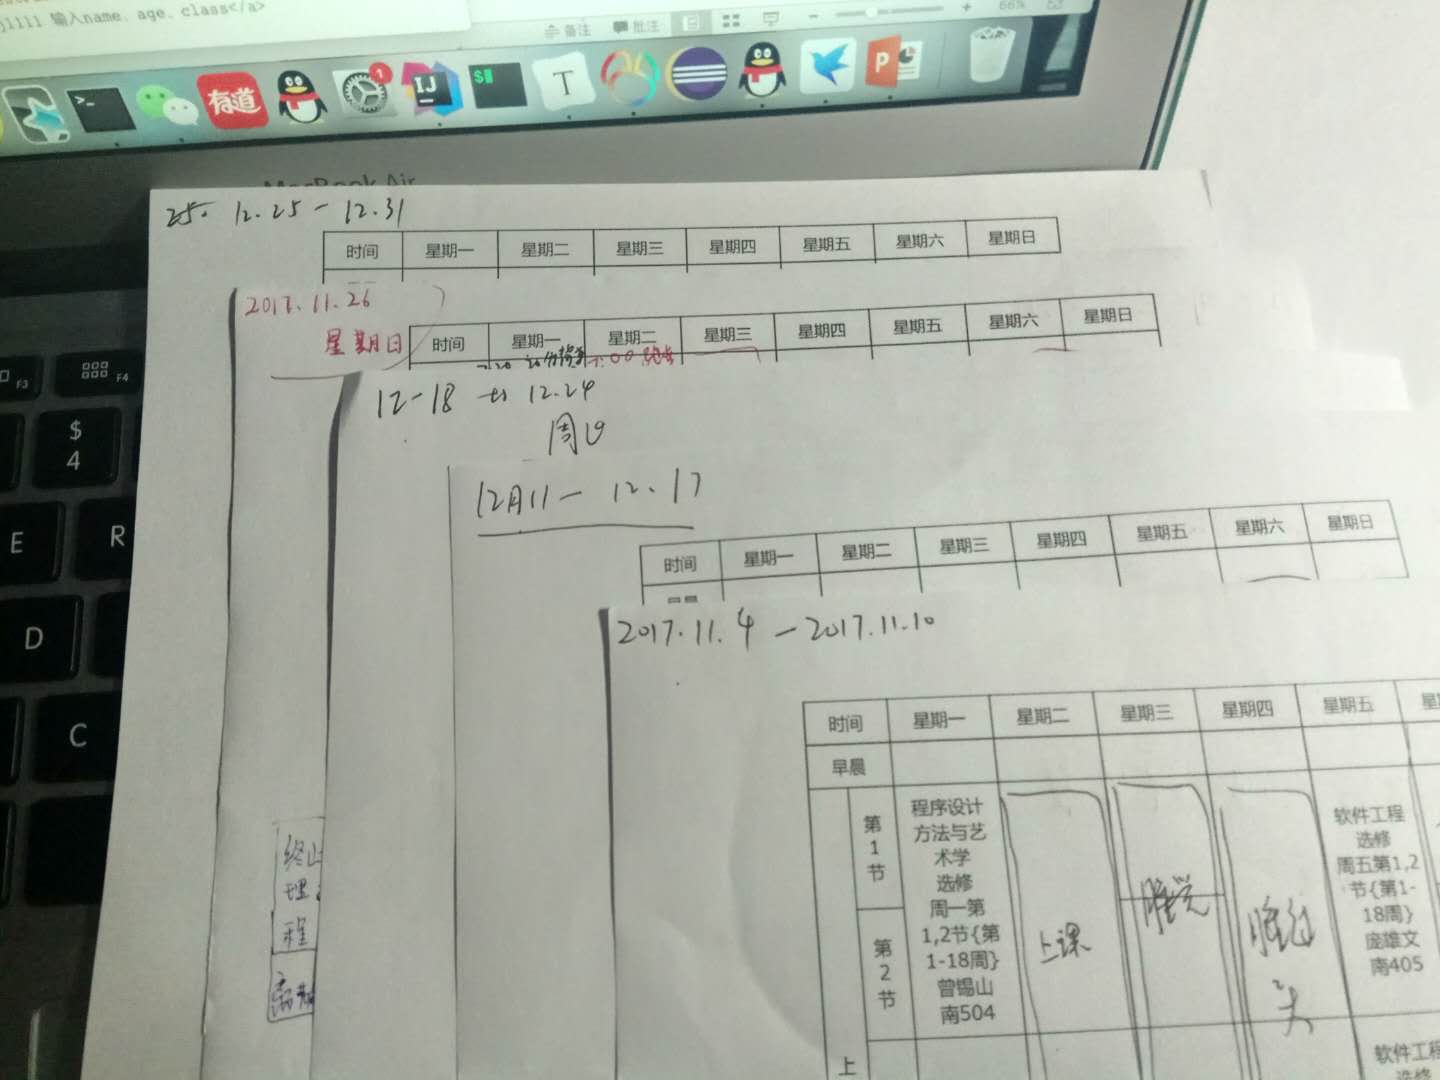 输入name、age、class</a>
备注 批注 66%
>_
有道
1
IJ
$
T
P
MacBook Air
F3
F4
$
4
E
R
D
C
25. 12.25-12.31
时间 星期一 星期二 星期三 星期四 星期五 星期六 星期日
2017.11.26
星期日
时间 星期一 星期二 星期三 星期四 星期五 星期六 星期日
12-18 to 12.24
周
12月11- 12.17
时间 星期一 星期二 星期三 星期四 星期五 星期六 星期日
2017.11.4 -2017.11.10
时间 星期一 星期二 星期三 星期四 星期五
早晨
第
1
节
第
2
节
上
程序设计
方法与艺
术学
选修
周一第
1,2节{第
1-18周}
曾锡山
南504
上课
睡觉
睡过
头
软件工程
选修
周五第1,2
节{第1-
18周}
庞雄文
南405
软件工程
选修